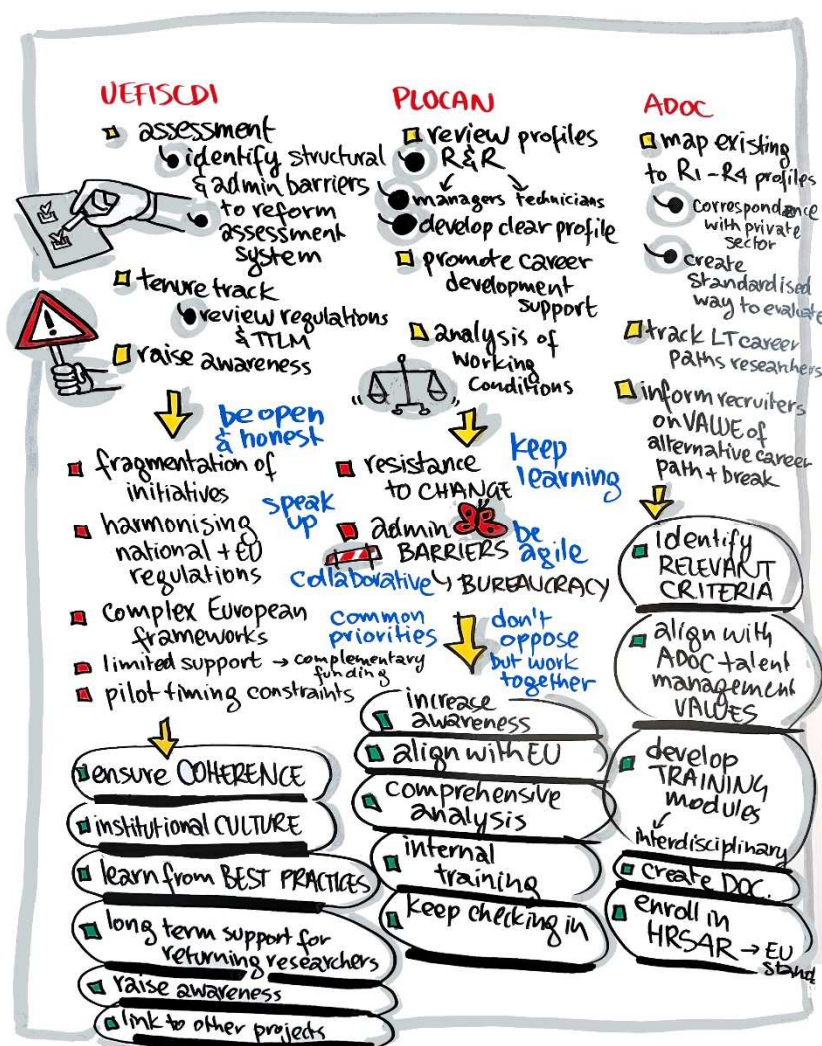 UEFISCDI
assessment
identify structural
& admin barriers
to reform
assessment
system
tenure track
review regulations
& TTLM
raise awareness
be open
& honest
fragmentation of
initiatives
speak
up
harmonising
national + EU
regulations
complex European
frameworks
limited support → complementary
funding
pilot timing constraints
ensure COHERENCE
institutional CULTURE
learn from BEST PRACTICES
long term support for
returning researchers
raise awareness
link to other projects
PLOCAN
review profiles
R&R
managers technicians
develop clear profile
promote career
development
support
analysis of
working
conditions
keep
learning
resistance
to CHANGE
admin
BARRIERS
be
agile
collaborative
BUREAUCRACY
common
priorities
don't
oppose
but work
together
increase
awareness
align with EU
comprehensive
analysis
internal
training
keep checking in
ADOC
map existing
to R1-R4 profiles
correspondance
with private
sector
create
standardised
way to evaluate
track LT career
paths researchers
inform recruiters
on VALUE of
alternative career
path + break
identify
RELEVANT
CRITERIA
align with
ADOC talent
management
VALUES
develop
TRAINING
modules
interdisciplinary
create DOC.
enroll in
HRSAR → EU
stand